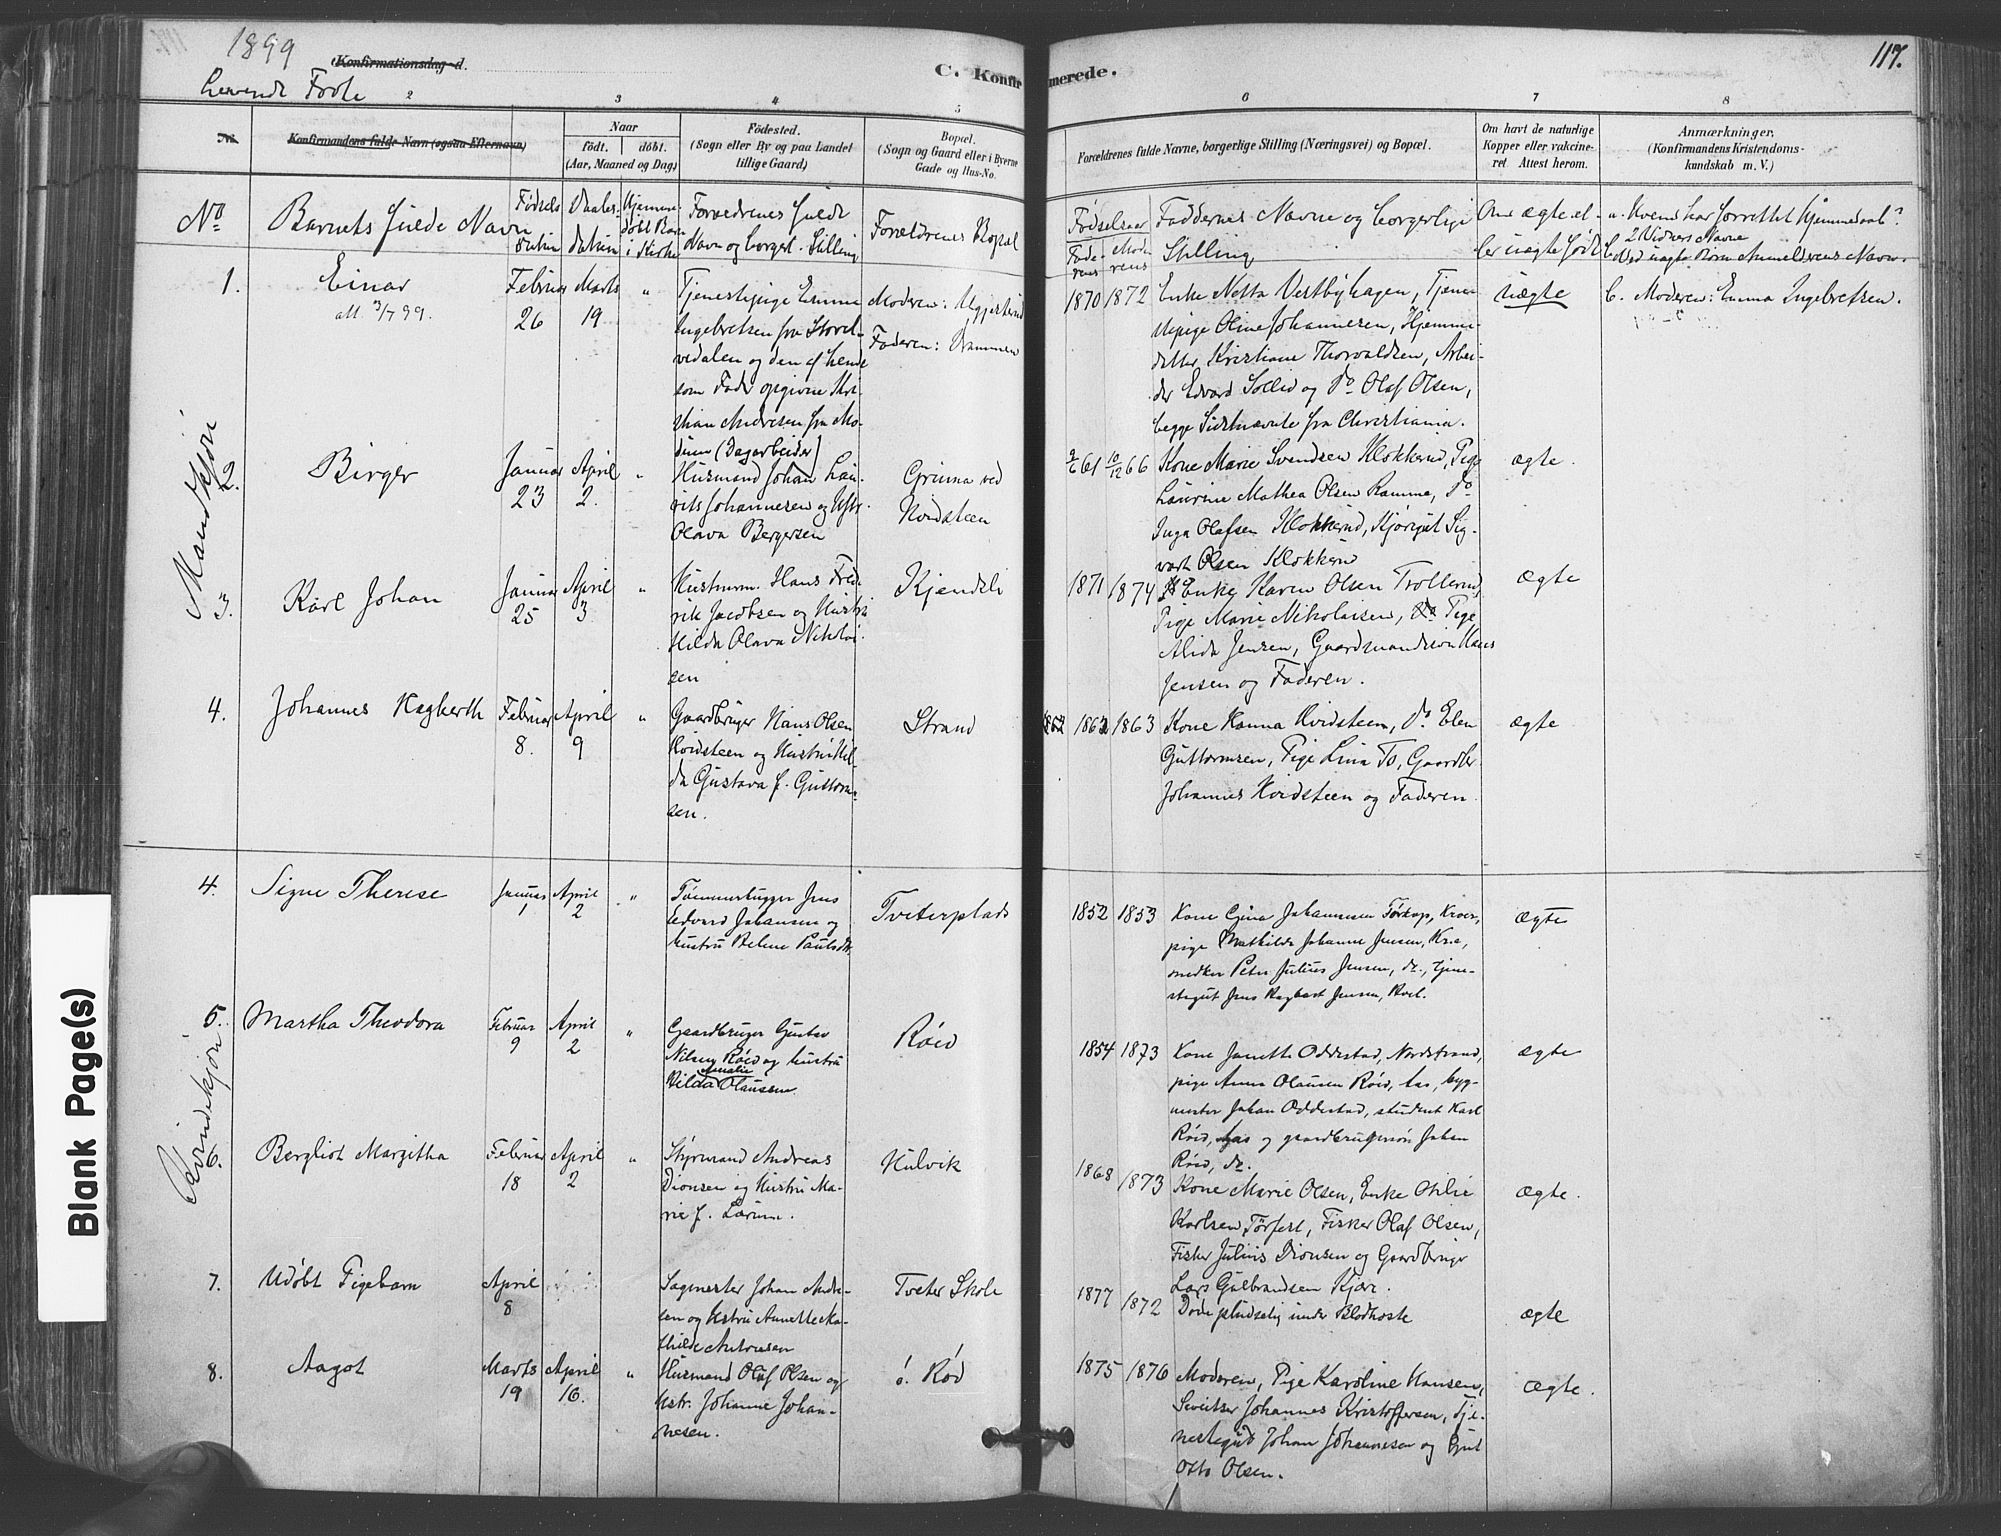 1899
Konfirmationsdag d.
C. Konfirmerede.
117.
levende Fødte
2
3
4
5
6
7
8
No.
Konfirmandens fulde Navn (ogsaa Efternavn)
Naar
født. døbt.
(Aar, Maaned og Dag)
Fødested.
(Sogn eller By og paa Landet
tillige Gaard)
Bopæl.
(Sogn og Gaard eller i Byerne
Gade og Hus-No.
Forældrenes fulde Navne, borgerlige Stilling (Næringsvei) og Bopæl.
Om havt de naturlige
Kopper eller vakcine-
ret Attest herom.
Anmærkninger.
(Konfirmandens Kristendoms-
kundskab m. V.)
No
Barnets fulde Navn
Fødsels
datum
Daabs-
datum
Hjemme-
døbt Barn
i Kirke
Forældrenes fulde
Navn og borgerl. Stilling
Forældrenes Bopæl
Fødselsaar
Fade-
rens
Mod-
rens
Faddernes Navne og borgerlige
Stilling
Om ægte el-
ler uægte født
a. Hvem har forrettet hjemmedaab?
2 Vidners Navne
b. Ved uægte Børn Anmelderens Navn.
Mandkjøn
1.
Einar
att. 3/7 99.
Februar
26
Marts
19
"
Tjenestepige Emma
Ingebretsen fra
og den af hende
som Fader opgivne Kri-
stian Andresen fra Mo-
dum (Dagarbeider)
Moderen:
Faderen: Drammen
1870 1872
Enke Netta Vestbyhagen, Tjene-
stepige Oline Johannesen, Hjemme-
datter Kristiane Thorvaldsen, Arbei-
der Edvard Sollid og do Olaf Olsen,
begge Sidstnævnte fra Christiania.
uægte
b. Moderen: Emma Ingebretsen.
2.
Birger
Januar
23
April
2.
"
Husmand Johan Lau-
rits Johannesen og Hstr.
Olava Bergersen
Grima ved
Hvidsteen
2/6 61 10/12 66
Kone Marie Svendsen Klokkerud, Pige
Laurine Mathea Olsen Ramme, do
Inga Olafsen Klokkerud, Sig-
vart Olsen Klokkerud
ægte.
3.
Karl Johan
Januar
25
April
3
"
Hans Fred-
rik Jacobsen og Hustru
Hilda Olava Nikolai-
sen
Kjendsli
1871 1874
Enke Karen Olsen Trollerud,
Pige Marie Nikolaisen, Pige
Alida Jensen, Gaardmandssøn Hans
Jensen og Faderen.
ægte
4.
Johannes Hagberth
Februar
8.
April
9
"
Gaardbruger Hans Olsen
Hvidsteen og Hustru Hil-
da Gustava f. Guttorm-
sen.
Strand
1862 1863
Kone Hanna Hvidsteen, do Elen
Guttormsen, Pige Lina To, Gaardbr
Johannes Hvidsteen og Faderen.
ægte
Kvindekjøn
4.
Signe Therese
Januar
1
April
2
"
Tømmerhugger Jens
Edvard Johansen og
hustru Helene Paulsdtr.
Tveterplads
1852 1853
Kone Gina Johannesen Tørkop, Kroer,
pige Mathilde Johanne Jensen, Kr.a,
snedker Peter Julius Jensen, do., tjene-
stegut Jens Hagbart Jensen,
ægte
5.
Martha Theodora
Februar
9
April
2
"
Gaardbruger Gustav
Nilsen Røed og hustru
Amalie
Hilda Olaussen
Røed
1854 1873
Kone Janette Oddestad, Nordstrand,
pige Anna Olausen Røed, Aas, byg-
mester Johan Oddestad, student Karl
Røed, Aas og gaardbrugersøn Johan
Røed, do.
ægte
6.
Bergliot Margitha
Februar
18
April
2
"
Styrmand Andreas
Dionsen og Hustru Ma-
rie f. Lærum.
Hulvik
1868 1873
Kone Marie Olsen, Enke Otilie
Karlsen Tørfest, Fisker Olaf Olsen,
Fisker Julius Dionsen og Gaardbruger
Lars Gulbrandsen Kjær.
ægte.
7.
Udøbt Pigebarn
April
8
Sagmester Johan Andre-
sen og Hstru Annette Ma-
thilde Antonsen
Tveter Skole
1877 1872
Døde pludselig under Blodhoste
ægte
8.
Aagot
Marts
19
April
16.
"
Husmand Olaf Olsen og
Hstr. Johanne Johan-
nesen.
ö. Rød
1875 1876
Moderen, Pige Karoline Hansen,
Sveitser Johannes Kristoffersen, Tje-
nestegut Johan Johannesen og Gut
Otto Olsen.
ægte.
Blank Page(s)